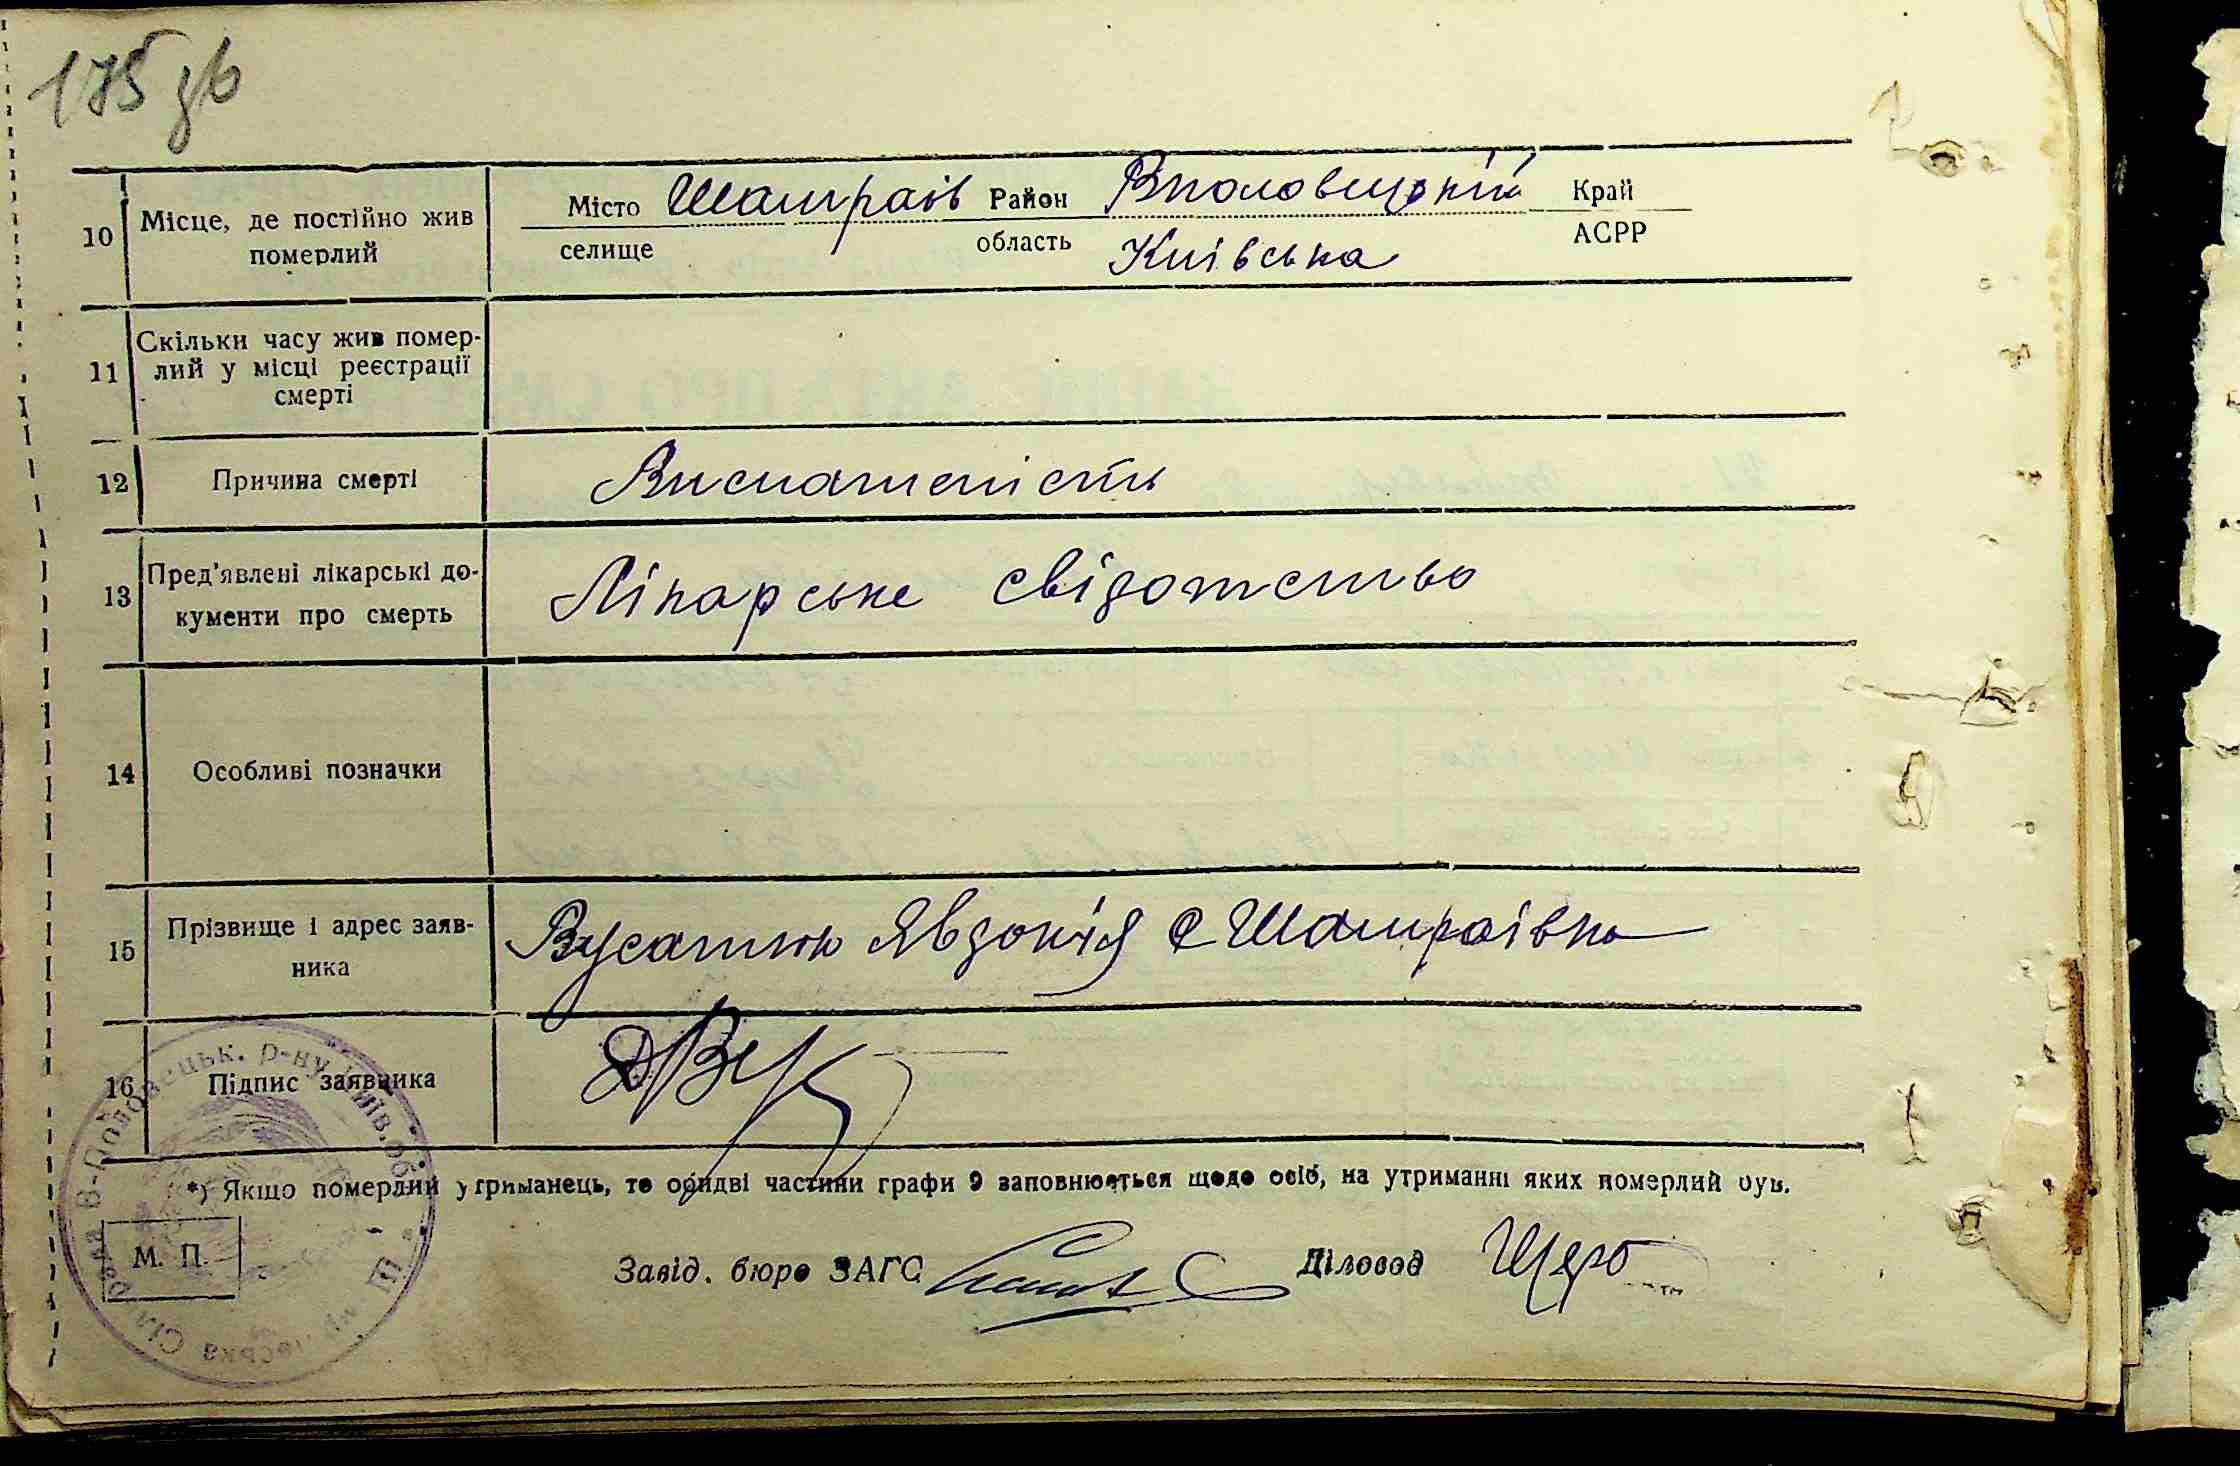 175 зв
10 Місце, де постійно жив померлий
Місто Шамраів Район Вполовецький Край
селище область Київська АСРР
11 Скільки часу жив помер-
лий у місці реєстрації
смерті
12 Причина смерті Виснатеність
13 Пред'явлені лікарські до-
кументи про смерть
Лікарське свідотство
14 Особливі позначки
15 Прізвище і адрес заяв-
ника
Вусатюк Явдокія с Шамраівка
16 Підпис заявника
*) Якщо померлий утриманець, то обидві частини графи 9 заповнюється щодо осіб, на утриманні яких померлий був.
М. П.
Завід. бюро ЗАГС Діловод
Сіл рада В-Половецьк. р-ну Київ. об